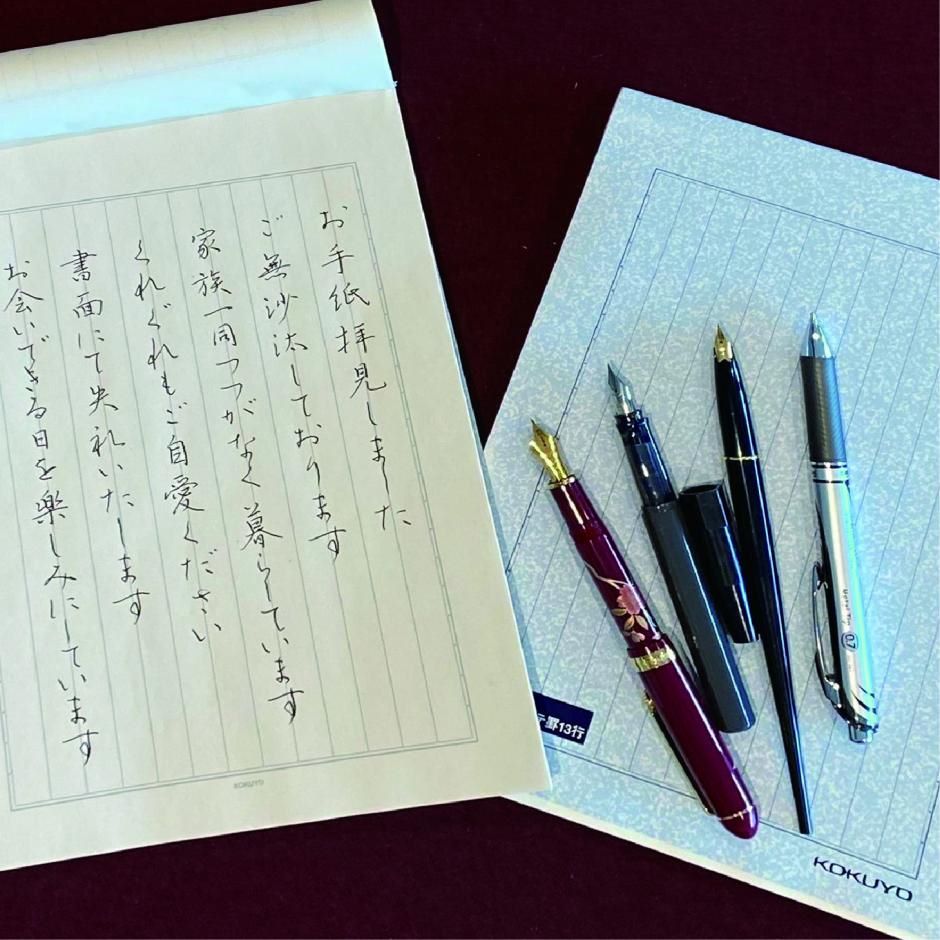 お手紙拝見しました
ご無沙汰しております
家族一同つつがなく暮らしています
くれぐれもご自愛ください
書面にて失礼いたします
お会いできる日を楽しみにしています
KOKUYO
罫13行
0.7
KOKUYO